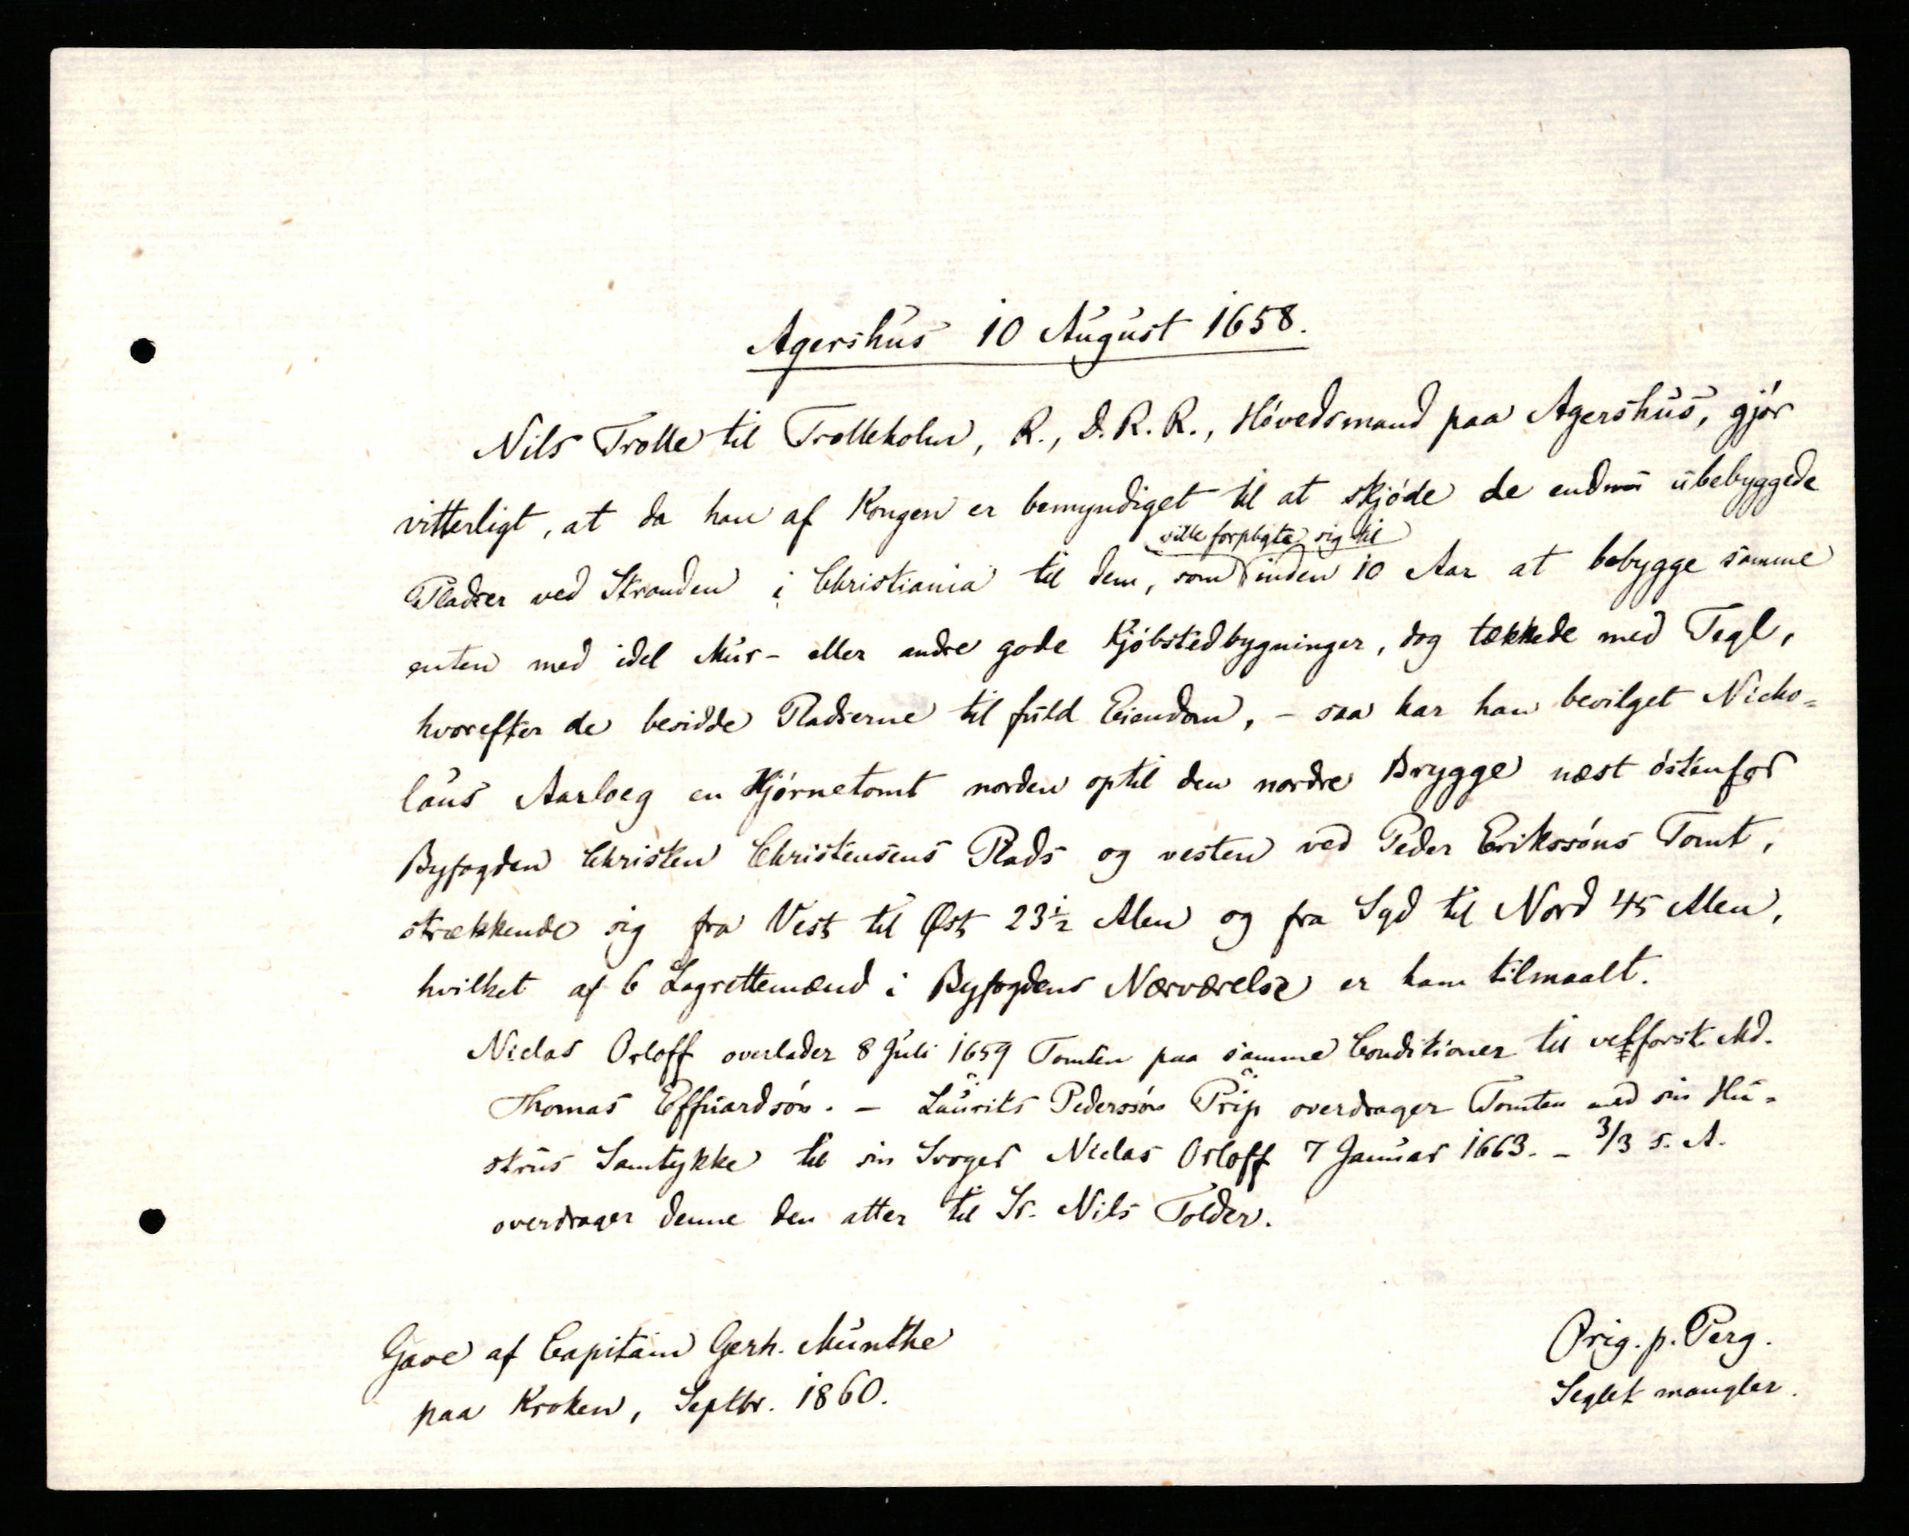 Agershus 10 August 1658.
Nils Trolle til Trolleholm, R., D. R. R., Hövedsmand paa Agershus, gjör
vitterligt, at da han af Kongen er bemyndiget til at skjöde de end ubebyggede
ville forpligte sig til
Pladser ved Stranden i Christiania til dem, som inden 10 Aar at bebygge samme
enten med idel Mur- eller andre gode Kjöbstedbygninger, dog tækkede med Tegl,
hvorefter de besidde Pladserne til fuld Eiendom, - saa har han bevilget Nicko=
laus Aarloeg en Hjörnetomt norden optil den nordre Brygge næst östenfor
Byfogden Christen Christensens Plads og vesten ved Peder Erikssöns Tomt,
strækkende sig fra Vest til Øst 23½ Alen og fra Syd til Nord 45 Alen,
hvilket af 6 Lagrettemænd i Byfogdens Nærværelse er ham tilmaalt.
Niclas Orloff overlader 8 Juli 1659 Tomten paa samme Conditioner til velforst. Md.
Thomas Effuardsön. - Laurits Pederssön Prip overdrager Tomten med sin Hu=
strus Samtykke til sin Svoger Niclas Orloff 7 Januar 1663. - 3/3 s. A.
overdrager denne den atter til Sr. Nils Tolder.
Gave af Capitain Gerh. Munthe
paa Kroken, Septbr. 1860.
Orig. p. Perg.
Seglet mangler.